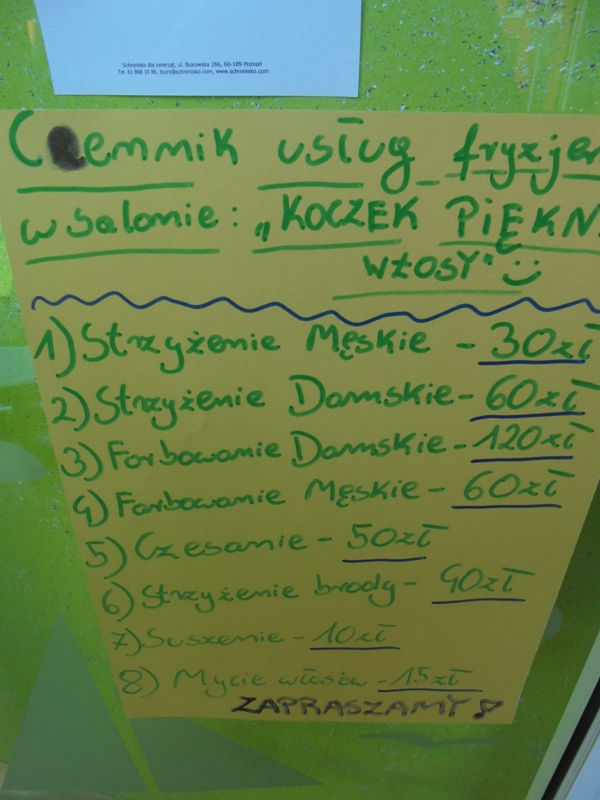 Schronisko dla zwierząt, ul. Bukowska 266, 60-189 Poznań
Tel. 61 868 10 86, biuro@schronisko.com, www.schronisko.com
Cennik usług fryzjer
w salonie: „KOCZEK PIĘKN
WŁOSY" :)
1) Strzyżenie Męskie - 30zł
2) Strzyżenie Damskie - 60zł
3) Farbowanie Damskie - 120zł
4) Farbowanie Męskie - 60zł
5) Czesanie - 50zł
6) Strzyżenie brody - 40zł
7) Suszenie - 10zł
8) Mycie włosów - 15zł
ZAPRASZAMY!